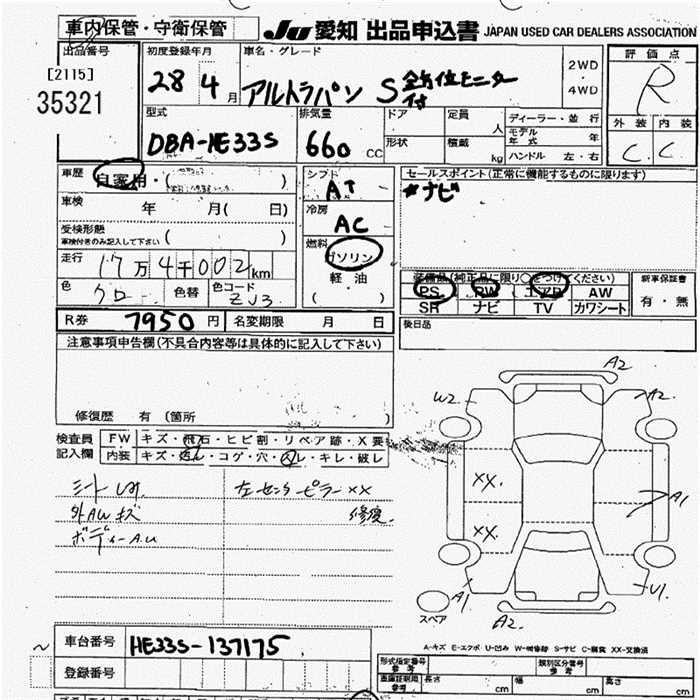 車内保管・守衛保管
JU 愛知 出品申込書 JAPAN USED CAR DEALERS ASSOCIATION
出品番号 初度登録年月 車名・グレード 評価点
[2115]
35321
28 4月 アルトラパン S 全方位モニター付 2WD・4WD R
型式 排気量 ドア 定員 人 ディーラー・並行 外装 内装
DBA-HE33S 660 CC 形状 積載 kg モデル年式 年 C C
ハンドル 左・右
車歴 自家用・( ) シフト AT セールスポイント(正常に機能するものに限ります)
車検 年 月( 日) 冷房 AC *ナビ
受検形態 車検付きのみ記入して下さい ( ) 燃料 ガソリン
走行 17万4千002km 軽油 装備品(純正品に限り○をつけてください) 新車保証書
色 クロ 色替 色コード ZJ3 ( ) PS PW エアB AW 有・無
SR ナビ TV カワシート
R券 7950円 名変期限 月 日 後日品
注意事項申告欄(不具合内容等は具体的に記入して下さい)
修復歴 有 〔箇所
検査員記入欄 FW キズ・飛石・ヒビ割・リペア跡・X要
内装 キズ・コゲ・穴・スレ・キレ・破レ
A2
W2 A2
シート 左センターピラーXX
外AWキズ 修復
XX
A1
XX
ボディーA.U
A1 U1
スペア A2
A-キズ E-エクボ U-凹み W-補修跡 S-サビ C-腐食 XX-交換済
車台番号 HE33S-137175
登録番号
形式指定番号 参考 類別区分番号 参考
車庫証明用 参考 長さ cm 幅 cm 高さ cm